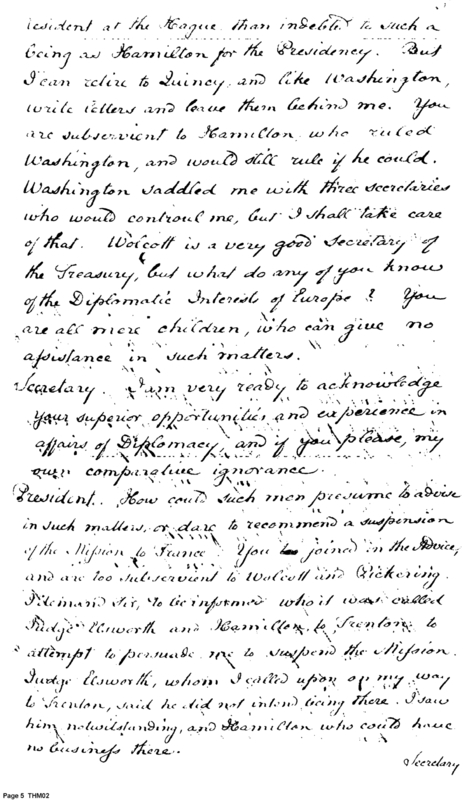 resident at the Hague than indebted to such a
being as Hamilton for the Presidency. But
I can retire to Quincy, and like Washington,
write letters and leave them behind me. You
are subservient to Hamilton, who ruled
Washington, and would still rule if he could.
Washington saddled me with three secretaries
who would controul me, but I shall take care
of that. Wolcott is a very good Secretary of
the Treasury, but what do any of you know
of the Diplomatic Interests of Europe? You
are all mere children, who can give no
assistance in such matters.
Secretary. I am very ready to acknowledge
your superior opportunities and experience in
affairs of Diplomacy, and if you please, my
own comparative ignorance.
President. How could such men presume to advise
in such matters, or dare to recommend a suspension
of the Mission to France. You joined in the Advice,
and are too subservient to Wolcott and Pickering.
I demand Sir, to be informed who it was called
Judge Elsworth and Hamilton to Trenton to
attempt to persuade me to suspend the Mission.
Judge Elsworth, whom I called upon on my way
to Trenton, said he did not intend being there. I saw
him notwithstanding, and Hamilton who could have
no business there.
Secretary
Page 5 THM02